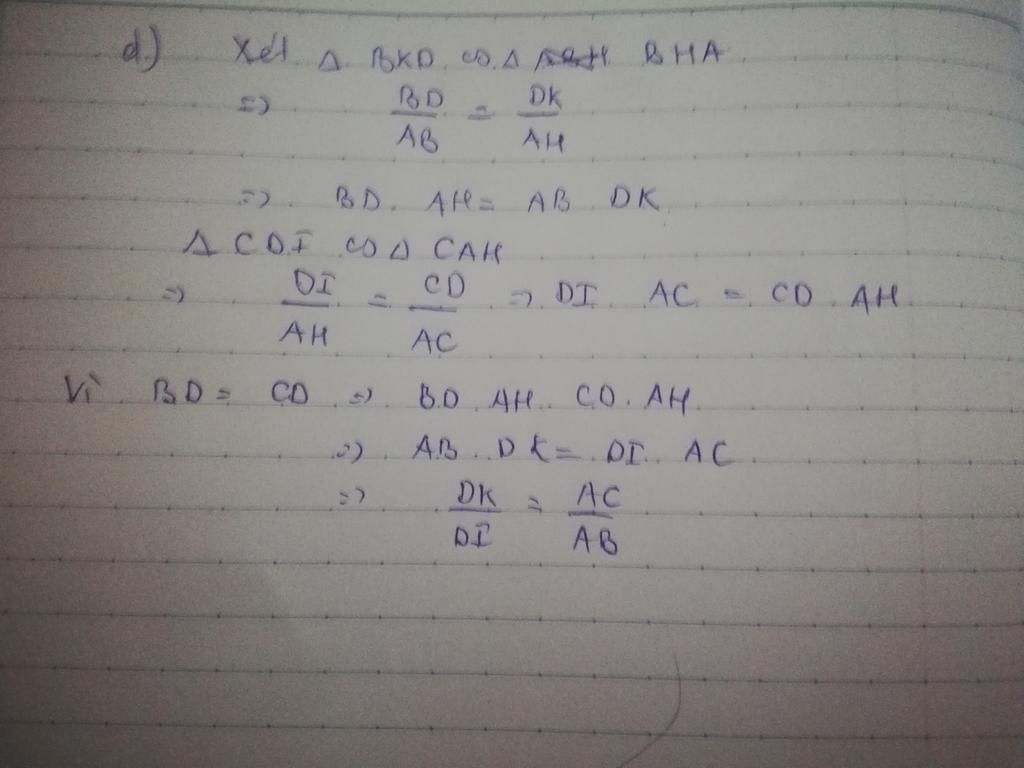 d) Xét Δ BKD ∽ Δ BHA
=> BD/AB = DK/AH
=> BD. AH = AB DK
Δ CDI ∽ Δ CAH
=> DI/AH = CD/AC => DI AC = CD AH
Vì BD = CD => BD. AH. CD. AH
=> AB. DK = DI. AC
=> DK/DI = AC/AB